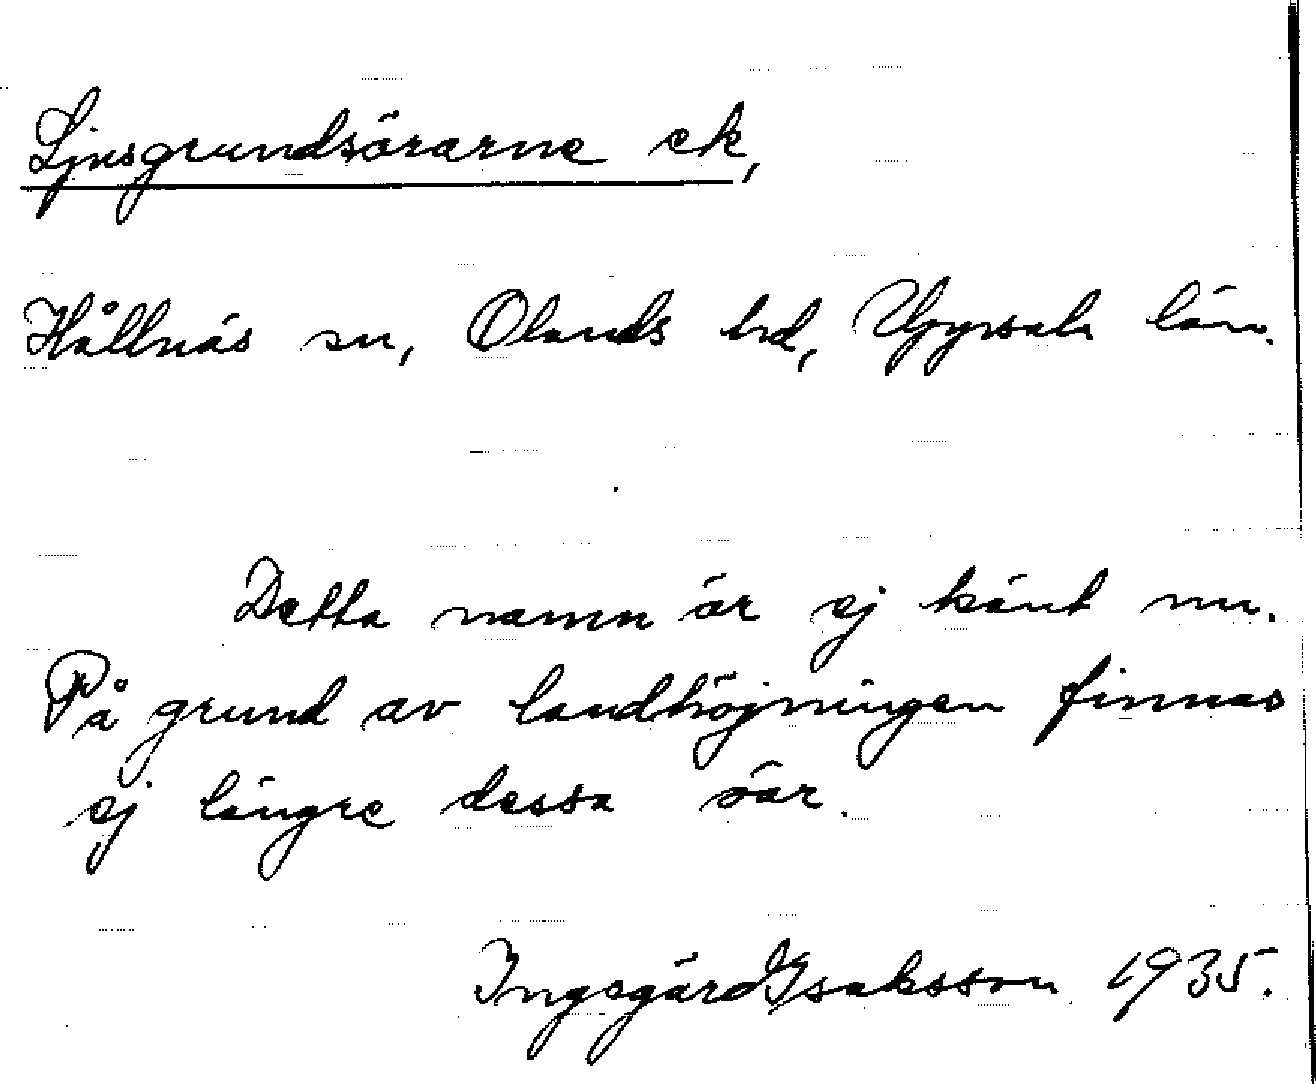 Ljusgrundsörarne ek,
Hållnäs sn, Olands hd, Uppsala län.
Detta namn är ej känt nu.
På grund av landhöjningen finnas
ej längre dessa öar.
Ingegärd Isaksson 1935.